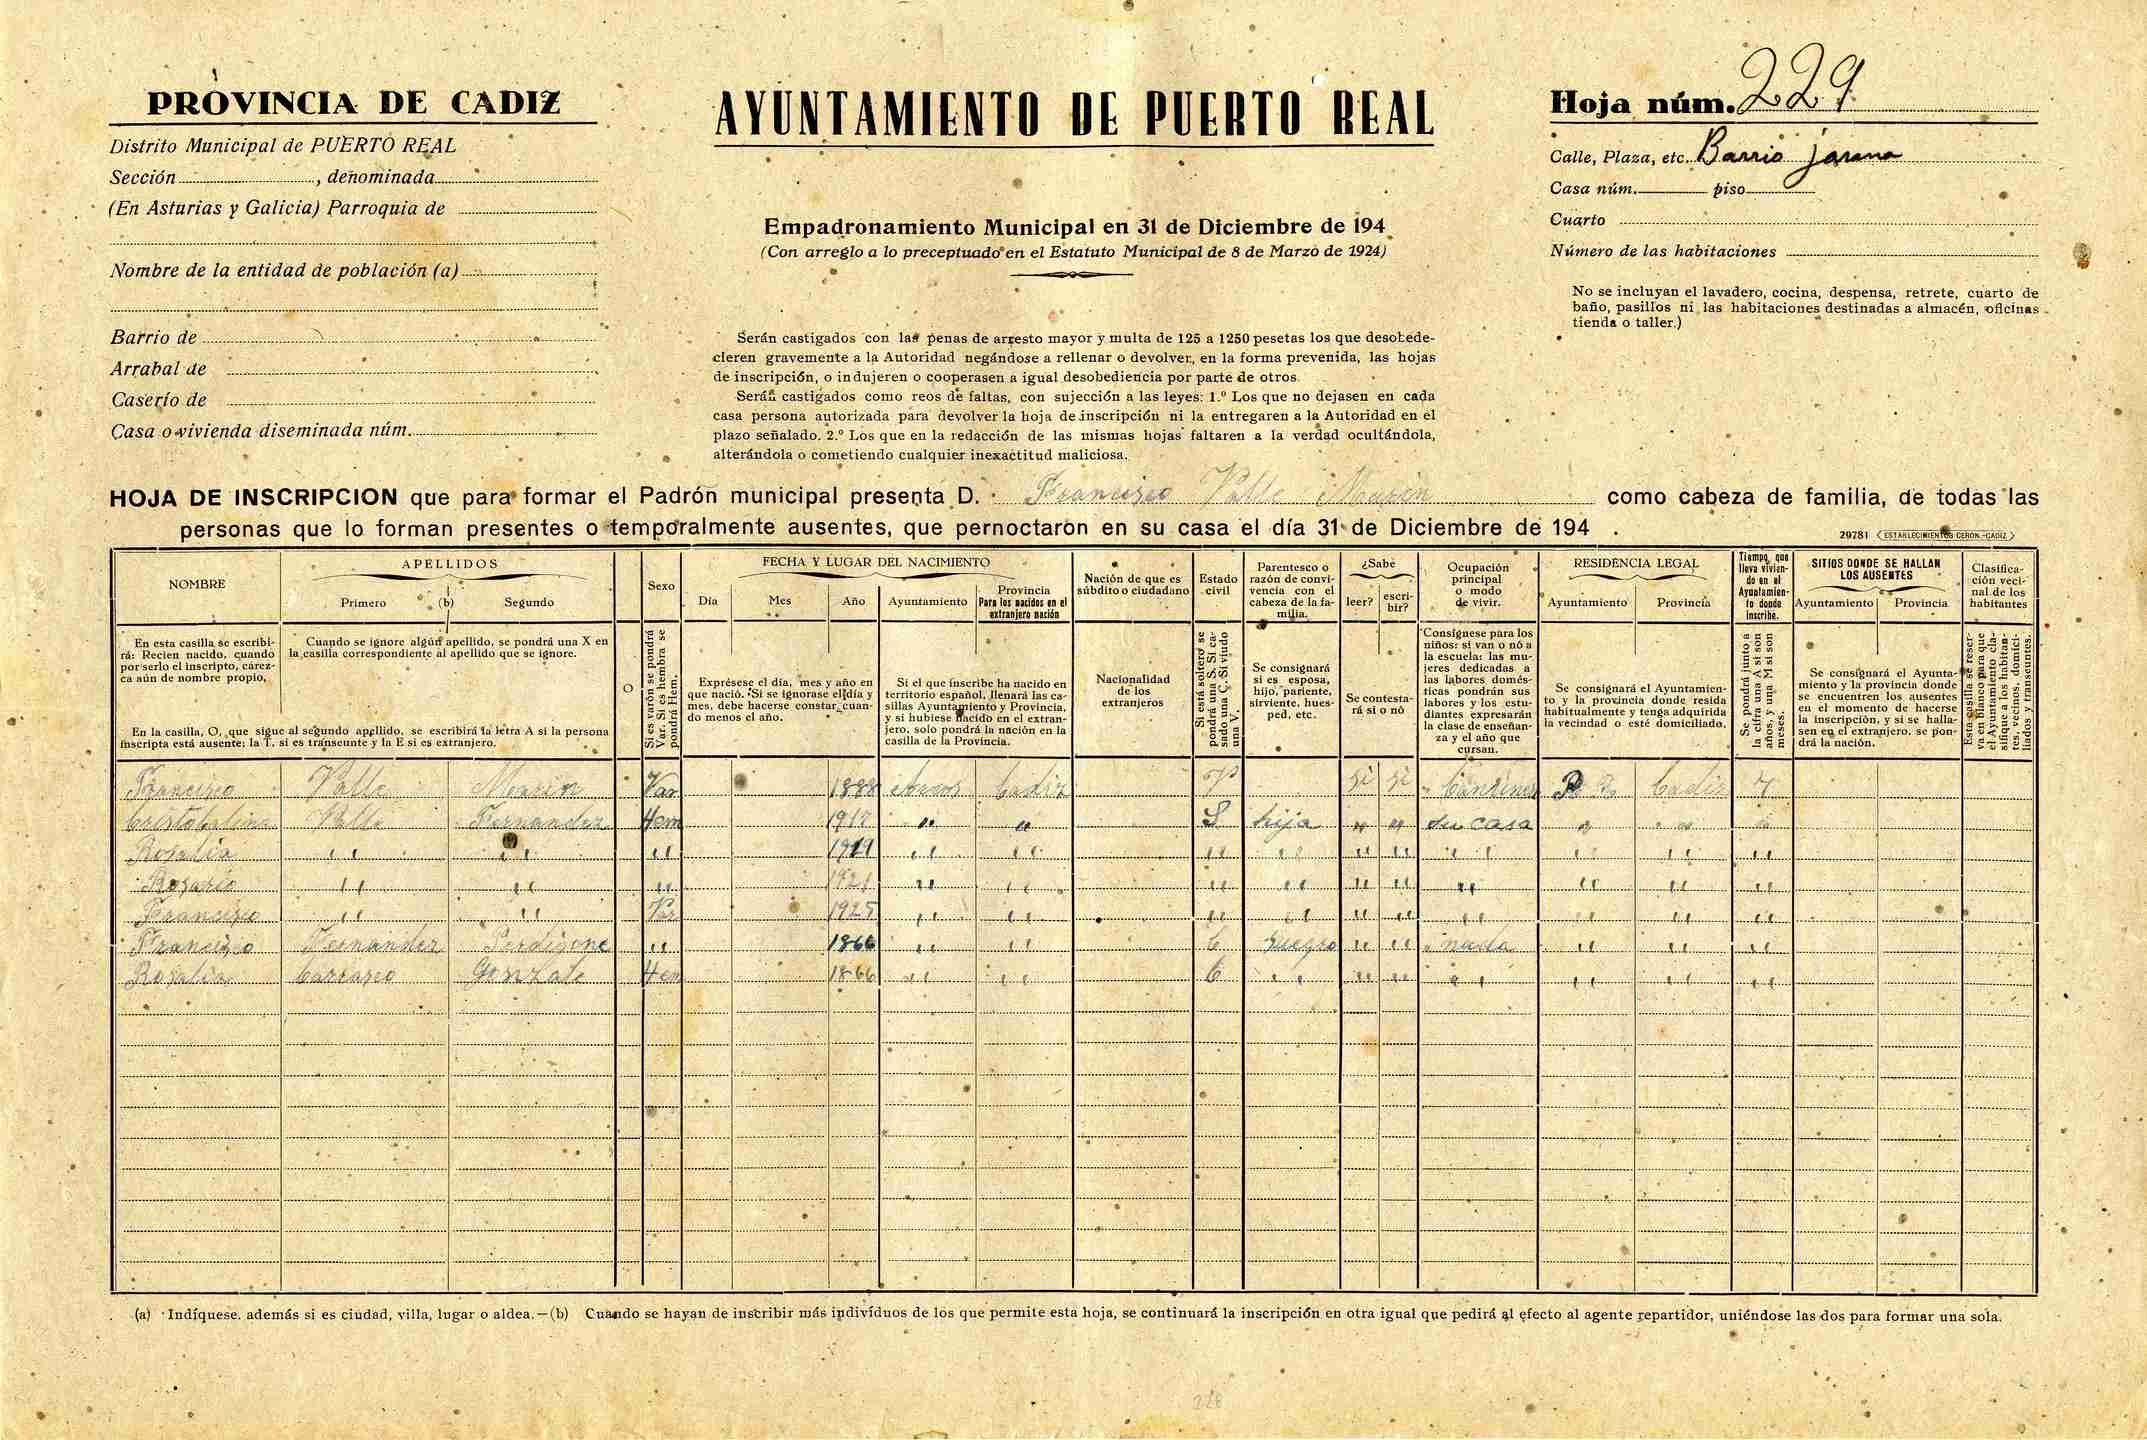 PROVINCIA DE CADIZ
Distrito Municipal de PUERTO REAL
Sección , denominada
(En Asturias y Galicia) Parroquia de
Nombre de la entidad de población (a)
Barrio de
Arrabal de
Caserío de
Casa o vivienda diseminada núm.
AYUNTAMIENTO DE PUERTO REAL
Empadronamiento Municipal en 31 de Diciembre de 194
(Con arreglo a lo preceptuado en el Estatuto Municipal de 8 de Marzo de 1924)
Serán castigados con las penas de arresto mayor y multa de 125 a 1250 pesetas los que desobede-
cieren gravemente a la Autoridad negándose a rellenar o devolver, en la forma prevenida, las hojas
de inscripción, o indujeren o cooperasen a igual desobediencia por parte de otros.
Serán castigados como reos de faltas, con sujección a las leyes: 1.º Los que no dejasen en cada
casa persona autorizada para devolver la hoja de inscripción ni la entregaren a la Autoridad en el
plazo señalado. 2.º Los que en la redacción de las mismas hojas faltaren a la verdad ocultándola,
alterándola o cometiendo cualquier inexactitud maliciosa.
Hoja núm. 229
Calle, Plaza, etc. Barrio Jarana
Casa núm. piso
Cuarto
Número de las habitaciones
No se incluyan el lavadero, cocina, despensa, retrete, cuarto de
baño, pasillos ni las habitaciones destinadas a almacén, oficinas
tienda o taller.)
HOJA DE INSCRIPCION que para formar el Padrón municipal presenta D. Francisco Valle Marin como cabeza de familia, de todas las
personas que lo forman presentes o temporalmente ausentes, que pernoctaron en su casa el día 31 de Diciembre de 194 .
29781 ESTABLECIMIENTOS CERON.-CADIZ
NOMBRE
En esta casilla se escribi-
rá: Recien nacido, cuando
por serlo el inscripto, carez-
ca aún de nombre propio.
APELLIDOS
Primero (b) Segundo
Cuando se ignore algún apellido, se pondrá una X en
la casilla correspondiente al apellido que se ignore.
En la casilla, O, que sigue al segundo apellido, se escribirá la letra A si la persona
inscripta está ausente; la T. si es transeunte y la E si es extranjero.
O
Sexo
Si es varón se pondrá
Var. Si es hembra se
pondrá Hem.
FECHA Y LUGAR DEL NACIMIENTO
Día Mes Año Ayuntamiento
Provincia
Para los nacidos en el
extranjero nación
Expresese el día, mes y año en
que nació. Si se ignorase el día y
mes, debe hacerse constar cuan-
do menos el año.
Si el que inscribe ha nacido en
territorio español, llenará las ca-
sillas Ayuntamiento y Provincia,
y si hubiese nacido en el extran-
jero, solo pondrá la nación en la
casilla de la Provincia.
Nación de que es
súbdito o ciudadano
Nacionalidad
de los
extranjeros
Estado
civil
Si está soltero se
pondrá una S. Si ca-
sado una C. Si viudo
una V.
Parentesco o
razón de convi-
vencia con el
cabeza de la fa-
milia.
Se consignará
si es esposa,
hijo, pariente,
sirviente, hues-
ped, etc.
¿Sabe
leer? escri-
bir?
Se contesta-
rá si o nó
Ocupación
principal
o modo
de vivir.
Consígnese para los
niños: si van o nó a
la escuela: las mu-
jeres dedicadas a
las labores domés-
ticas pondrán sus
labores y los estu-
diantes expresarán
la clase de enseñan-
za y el año que
cursan.
RESIDENCIA LEGAL
Ayuntamiento Provincia
Se consignará el Ayuntamien-
to y la provincia donde resida
habitualmente y tenga adquirida
la vecindad o esté domiciliado.
Tiempo que
lleva vivien-
do en el
Ayuntamien-
to donde
inscribe.
Se pondrá junto a
la cifra una A si son
años, y una M si son
meses.
SITIOS DONDE SE HALLAN
LOS AUSENTES
Ayuntamiento Provincia
Se consignará el Ayunta-
miento y la provincia donde
se encuentren los ausentes
en el momento de hacerse
la inscripción, y si se halla-
sen en el extranjero, se pon-
drá la nación.
Clasifica-
ción veci-
nal de los
habitantes
Esta casilla se reser-
va en blanco para que
el Ayuntamiento cla-
sifique los habitan-
tes, vecinos, domici-
liados y transeuntes.
Francisco Valle Marin Var 1888 Arcos Cadiz V si si P. R. Cadiz 7
Cristobalina Valle Fernandez Hem 1917 " " S hija " " su casa " " "
Rosalia " " " 1919 " " " " " " " " " "
Rosario " " " 1921 " " " " " " " " " "
Francisco " " Var 1925 " " " " " " " " " "
Francisco Fernandez Perdigone " 1866 " " C suegro " " nada " " "
Rosalia Carrasco Gonzale Hem 1866 " " C " " " " " " "
(a) Indíquese, además si es ciudad, villa, lugar o aldea.—(b) Cuando se hayan de inscribir más individuos de los que permite esta hoja, se continuará la inscripción en otra igual que pedirá al efecto al agente repartidor, uniéndose las dos para formar una sola.
228